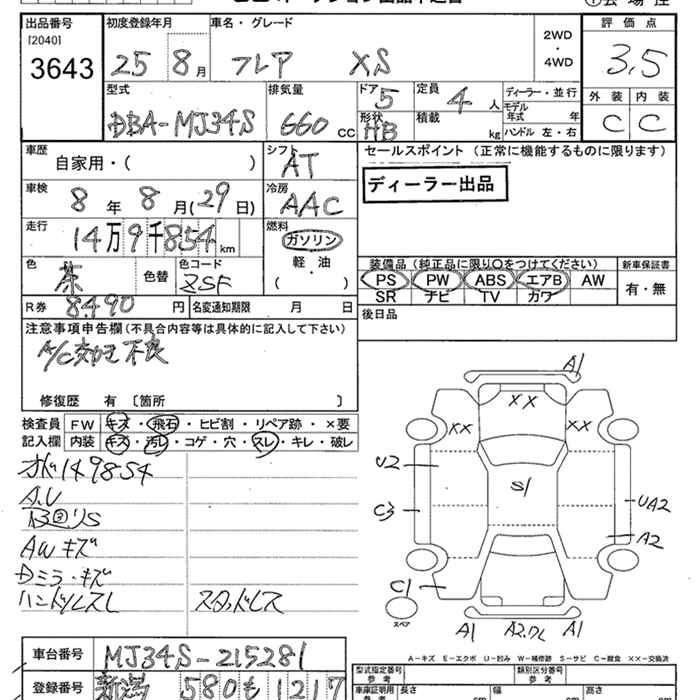 出品番号
[2040]
3643
初度登録年月
25 8月
車名・グレード
フレア XS
2WD
・
4WD
評価点
3.5
外装 内装
C C
型式
DBA-MJ34S
排気量
660 CC
ドア
5
形状
HB
定員
4人
積載
kg
ディーラー・並行
モデル年式 年
ハンドル 左・右
車歴
自家用・( )
シフト
AT
セールスポイント(正常に機能するものに限ります)
ディーラー出品
車検
8年 8月(29日)
冷房
AAC
走行
14万9千854km
燃料
ガソリン
軽・油
( )
色
茶
色替
色コード
ZSF
装備品(純正品に限り〇をつけてください)
PS PW ABS エアB AW
SR ナビ TV カワ
新車保証書
有・無
R券 8490円
名変通期限 月 日
後日品
注意事項申告欄(不具合内容等は具体的に記入して下さい)
A/C 不良
修復歴 有〔箇所 〕
検査員
記入欄
FW キズ・飛石・ヒビ割・リペア跡・×要
内装 キズ・汚レ・コゲ・穴・スレ・キレ・破レ
149854
A.U
AWキズ
Dミラ・キズ
ハンドルスレ
スタッドレス
A1
XX
XX XX
U2
S1
C3
UA2
A2
C1
スペア
A1 A1
A-キズ E-エクボ U-凹み W-補修跡 S-サビ C-腐食 XX-交換済
車台番号
MJ34S-215281
登録番号
新潟 580も 1217
型式指定番号
参考
類別区分番号
参考
車庫証明用
参考
長さ cm
幅 cm
高さ cm